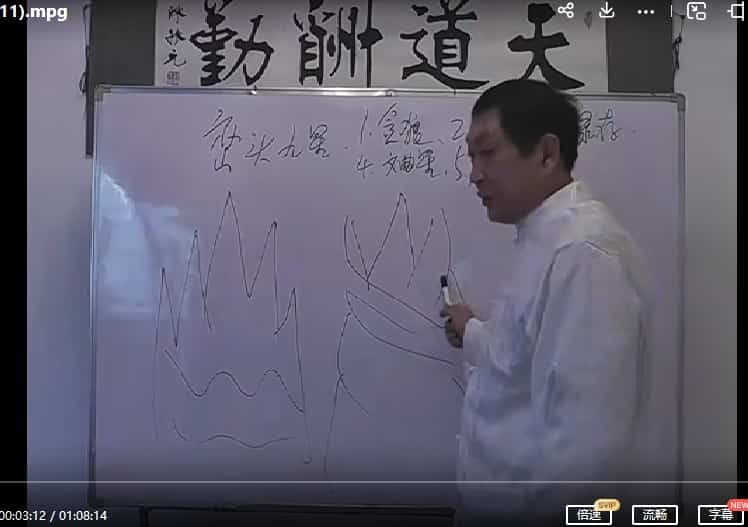 11).mpg
天道酬勤
峦头九星、1.金狼、2
4.文曲星、5
禄存.
00:03:12 / 01:08:14
倍速
SVIP
流畅
字幕
NEW